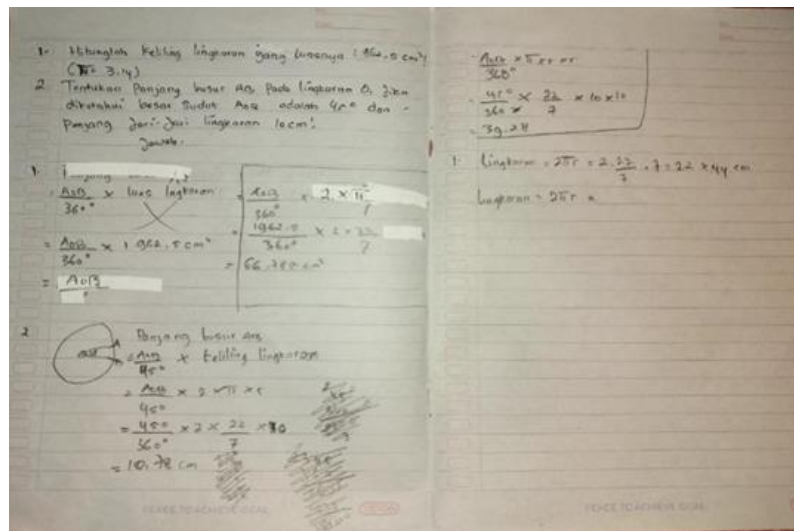 1. Hitunglah Keliling lingkaran yang luasnya 1962.5 cm²!
(π= 3.14)
2 Tentukan Panjang busur AOB Pada lingkaran O, Jika
diketahui besar Sudut AOB adalah 45° dan -
Panjang Jari-Jari lingkaran 10cm!
Jawab:
1.
= AOB/360° × luas lingkaran
= AOB/360° × 1962.5 cm²
= AOB
= AOB/360° × 2 × π
= 1962.5/360° × 2 × 22/7
= cm²
2 Panjang busur AOB
= AOB/45° × keliling lingkaran
= AOB/45° × 2 × π × r
= 45°/360° × 2 × 22/7 × 10
= 10,78 cm
PEACE TO ACHIEVE GOAL
AOB/360° × π × r × r
= 45°/360° × 22/7 × 10 × 10
= 39.24
1. Lingkaran = 2πr = 2.22/7 . 7 = 22 × 44 cm
Lingkaran = 2πr =
PEACE TO ACHIEVE GOAL